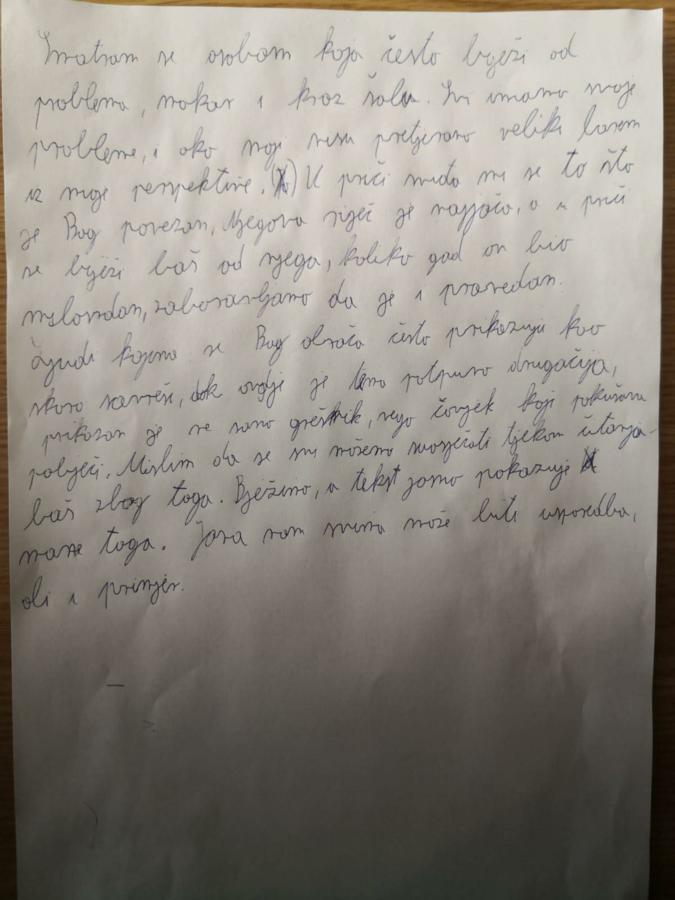 Smatram se osobom koja često bježi od
problema, makar i kroz šalu. Svi imamo svoje
probleme, i ako moji nisu pretjerano veliki barem
iz moje perspektive. U priči sviđa mi se to što
je Bog povezan, Njegova riječ je najjača, a u priči
se bježi baš od njega, koliko god on bio
milosrdan, zaboravljamo da je i pravedan.
Ljudi kojima se Bog obraća često prikazuju kao
skoro savršeni, dok ovdje je tema potpuno drugačija,
prikazan je ne samo grešnik, nego čovjek koji pokušava
pobjeći. Mislim da se svi možemo suosjećati tijekom čitanja
baš zbog toga. Bježimo, a tekst samo pokazuje
mane toga. Jona nam svima može biti usporedba,
ali i primjer.